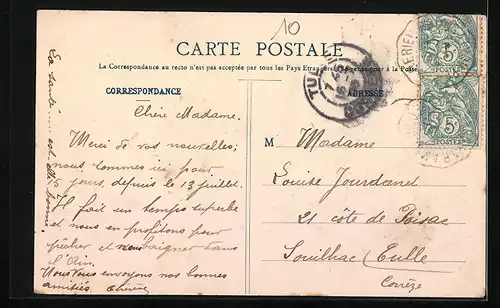 10
CARTE POSTALE
La Correspondance au recto n'est pas acceptée par tous les Pays Etrangers. (Se renseigner à la Poste)
CORRESPONDANCE
ADRESSE
TULLE
5
5
La santé .... est elle bonne.
Chère Madame.
Merci de vos nouvelles;
nous sommes ici pour
5 jours, depuis le 13 juillet.
Il fait un temps superbe
et nous en profitons pour
pêcher et nous baigner dans
l'Ain.
Nous vous envoyons nos bonnes
amitiés.
M Madame
Louise Jourdanet
21 côte de Poissac
Souilhac Tulle
Corrèze